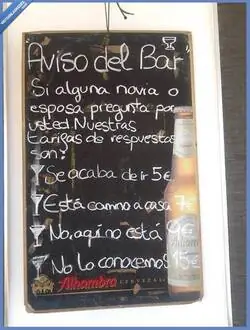 Aviso del Bar
Si alguna novia o
esposa pregunta por
usted Nuestras
tarifas de respuestas
son:
Se acaba de ir 5€
Está camino a casa 7€
No, aqui no está 9€
No lo conocemos 15€
Alhambra
CERVEZAS